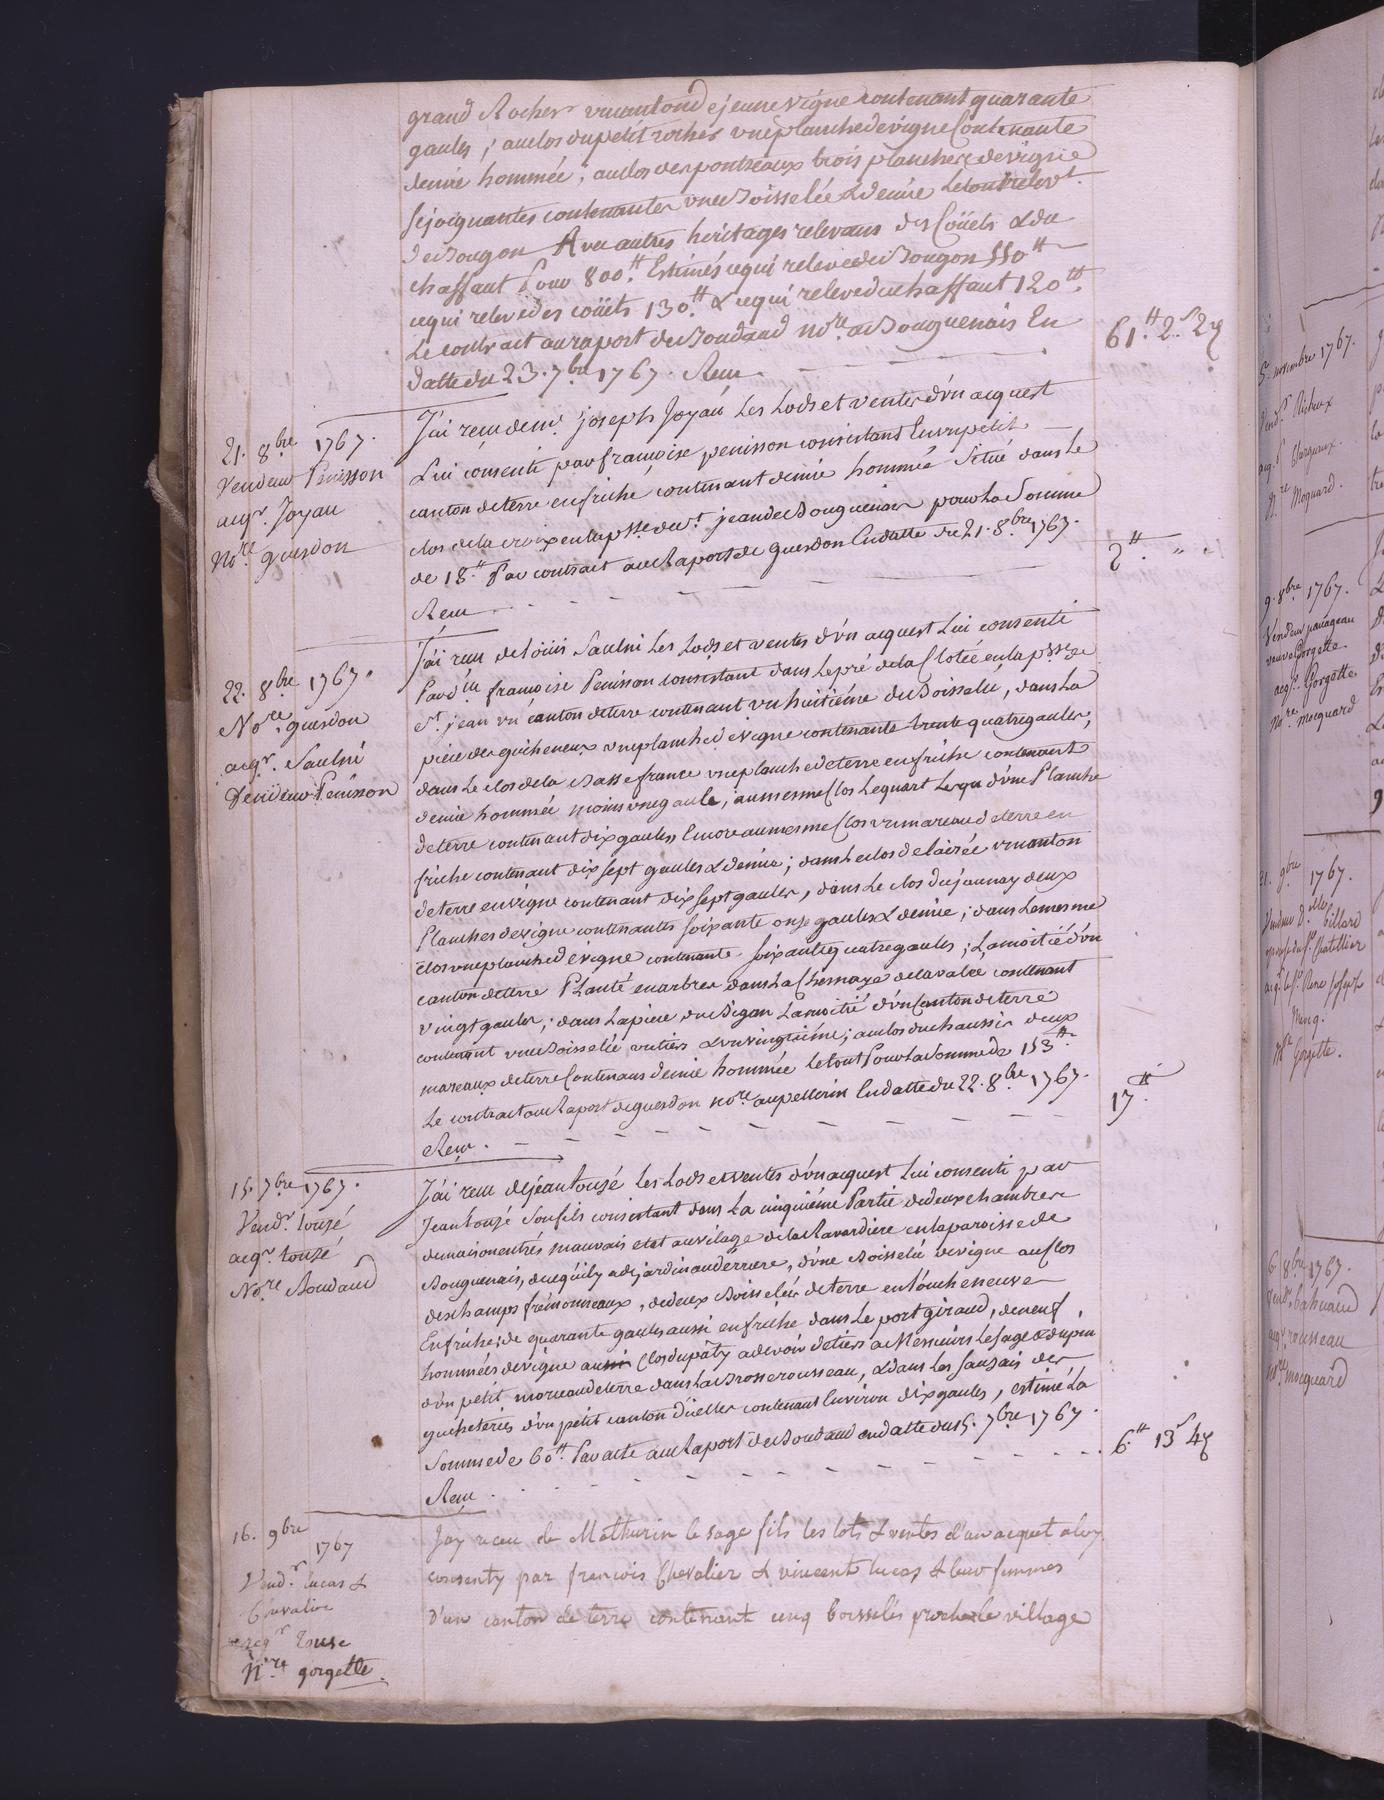 grand Rocher un canton de jeune vigne contenant quarante
gaules ; au clos du petit rocher une planche de vigne Contenante
demie hommée ; au clos des pontreaux trois planches de vigne
se joignantes contenantes une Boisselée & demie Le tout relevt
de Bougon Avec autres heritages relevans des Coüets & du
chaffaut Pour 800.tt Estimés ce qui releve de Bougon 550tt
ce qui releve des coüets 130.tt & ce qui releve du chaffaut 120tt.
Le contrait au raport de Boudaud nore a Bouguenais En
Datte du 23. 7bre 1767. Reçu
61.tt 2.s 2d
21. 8bre 1767.
Vendeur Penisson
acqr. Joyau
Nore guesdon
J'ai reçu de mr. joseph Joyau Les Lods et ventes d'un acquest
Lui consenti par françoise penisson consistant En un petit
canton de terre en friche contenant demie hommée Situé dans Le
clos de la croix en la psse de st. jean de Bouguenais pour La Somme
de 18.tt Par contrait au Raport de guesdon En datte du 21. 8bre 1767.
Reçu
2tt. " "
22. 8bre 1767.
Nore guesdon
acqr. Saulni
Vendeur Penisson
J'ai reçu de Loüis Saulni Les Lods et ventes d'un acquest Lui consenti
Par dlle françoise Penisson consistant dans Le pré de la Clotée en la psse de
st. jean un canton de terre contenant un huitiéme de Boisselée, dans La
piece des guicheneux une planche de vigne contenante trente quatre gaules,
dans Le clos de la Basse france une planche de terre en friche contenant
demie hommée moins une gaule, au mesme Clos Le quart d'une Planche
de terre contenant dix gaules, Encore au mesme Clos un mareau de terre en
friche contenant dix sept gaules & demie ; dans Le clos de l'airée un canton
de terre en vigne contenant dix sept gaules, dans Le clos du jaunay deux
Planches de vigne contenantes soixante onze gaules & demie ; dans Le mesme
clos une planche de vigne contenante soixante quatre gaules ; La moitié d'un
canton de terre Planté en arbres dans La Chesnaye de la valée contenant
vingt gaules ; dans La piece du Bigon La moitié d'un Canton de terre
contenant une Boisselée un tiers & un vingtiéme ; au clos du chaussis deux
mareaux de terre Contenans demie hommée le tout Pour La Somme de 153tt.
Le contrait au Raport de guesdon nore au pellerin En datte du 22. 8bre 1767.
Reçu
17tt
15. 7bre 1767.
Vendr. touzé
acqr touzé
Nore Boudaud
J'ai reçu de jean touzé les Lods et ventes d'un acquest Lui consenti par
Jean touzé Son fils consistant dans La cinquiéme Partie de deux chambres
de maison en trés mauvais etat au vilage de la Ravardiere en la paroisse de
Bouguenais, de ce qu'il y a de jardin au derriere, d'une Boisselée de vigne au Clos
des champs frémonseaux, de deux Boisselées de terre en Louche neuve
En friche, de quarante gaules aussi en friche dans Le port giraud, de neuf
hommées de vigne au Clos du pâty a devoir de tiers a Messieurs Le sage & dupin
d'un petit morceau de terre dans La Brosse rousseau, & dans Les sauzais des
gucheteries d'un petit canton d'icelles contenant Environ dix gaules, estimé La
Somme de 60tt. Par acte au Raport de Boudaud en datte du 15. 7bre 1767.
Reçu
6.tt 13s 4d
16. 9bre 1767
Vendr. lucas &
Chevalier
acqr
Nre gorgette
Jay receu de Mathurin le sage fils les lots & ventes d'un acquet a luy
consenty par francois Chevalier & vincent lucas & leur femmes
D'un canton de terre contenant cinq boisselés proche le village
5. novembre 1767.
nre Moquard.
9. 8bre 1767.
veuve Gorgette
acqr. Gorgette
Nore mocquard
21. 9bre 1767.
Nre Gorgette.
6 8bre 1767.
acqr rousseau
Nore mocquard